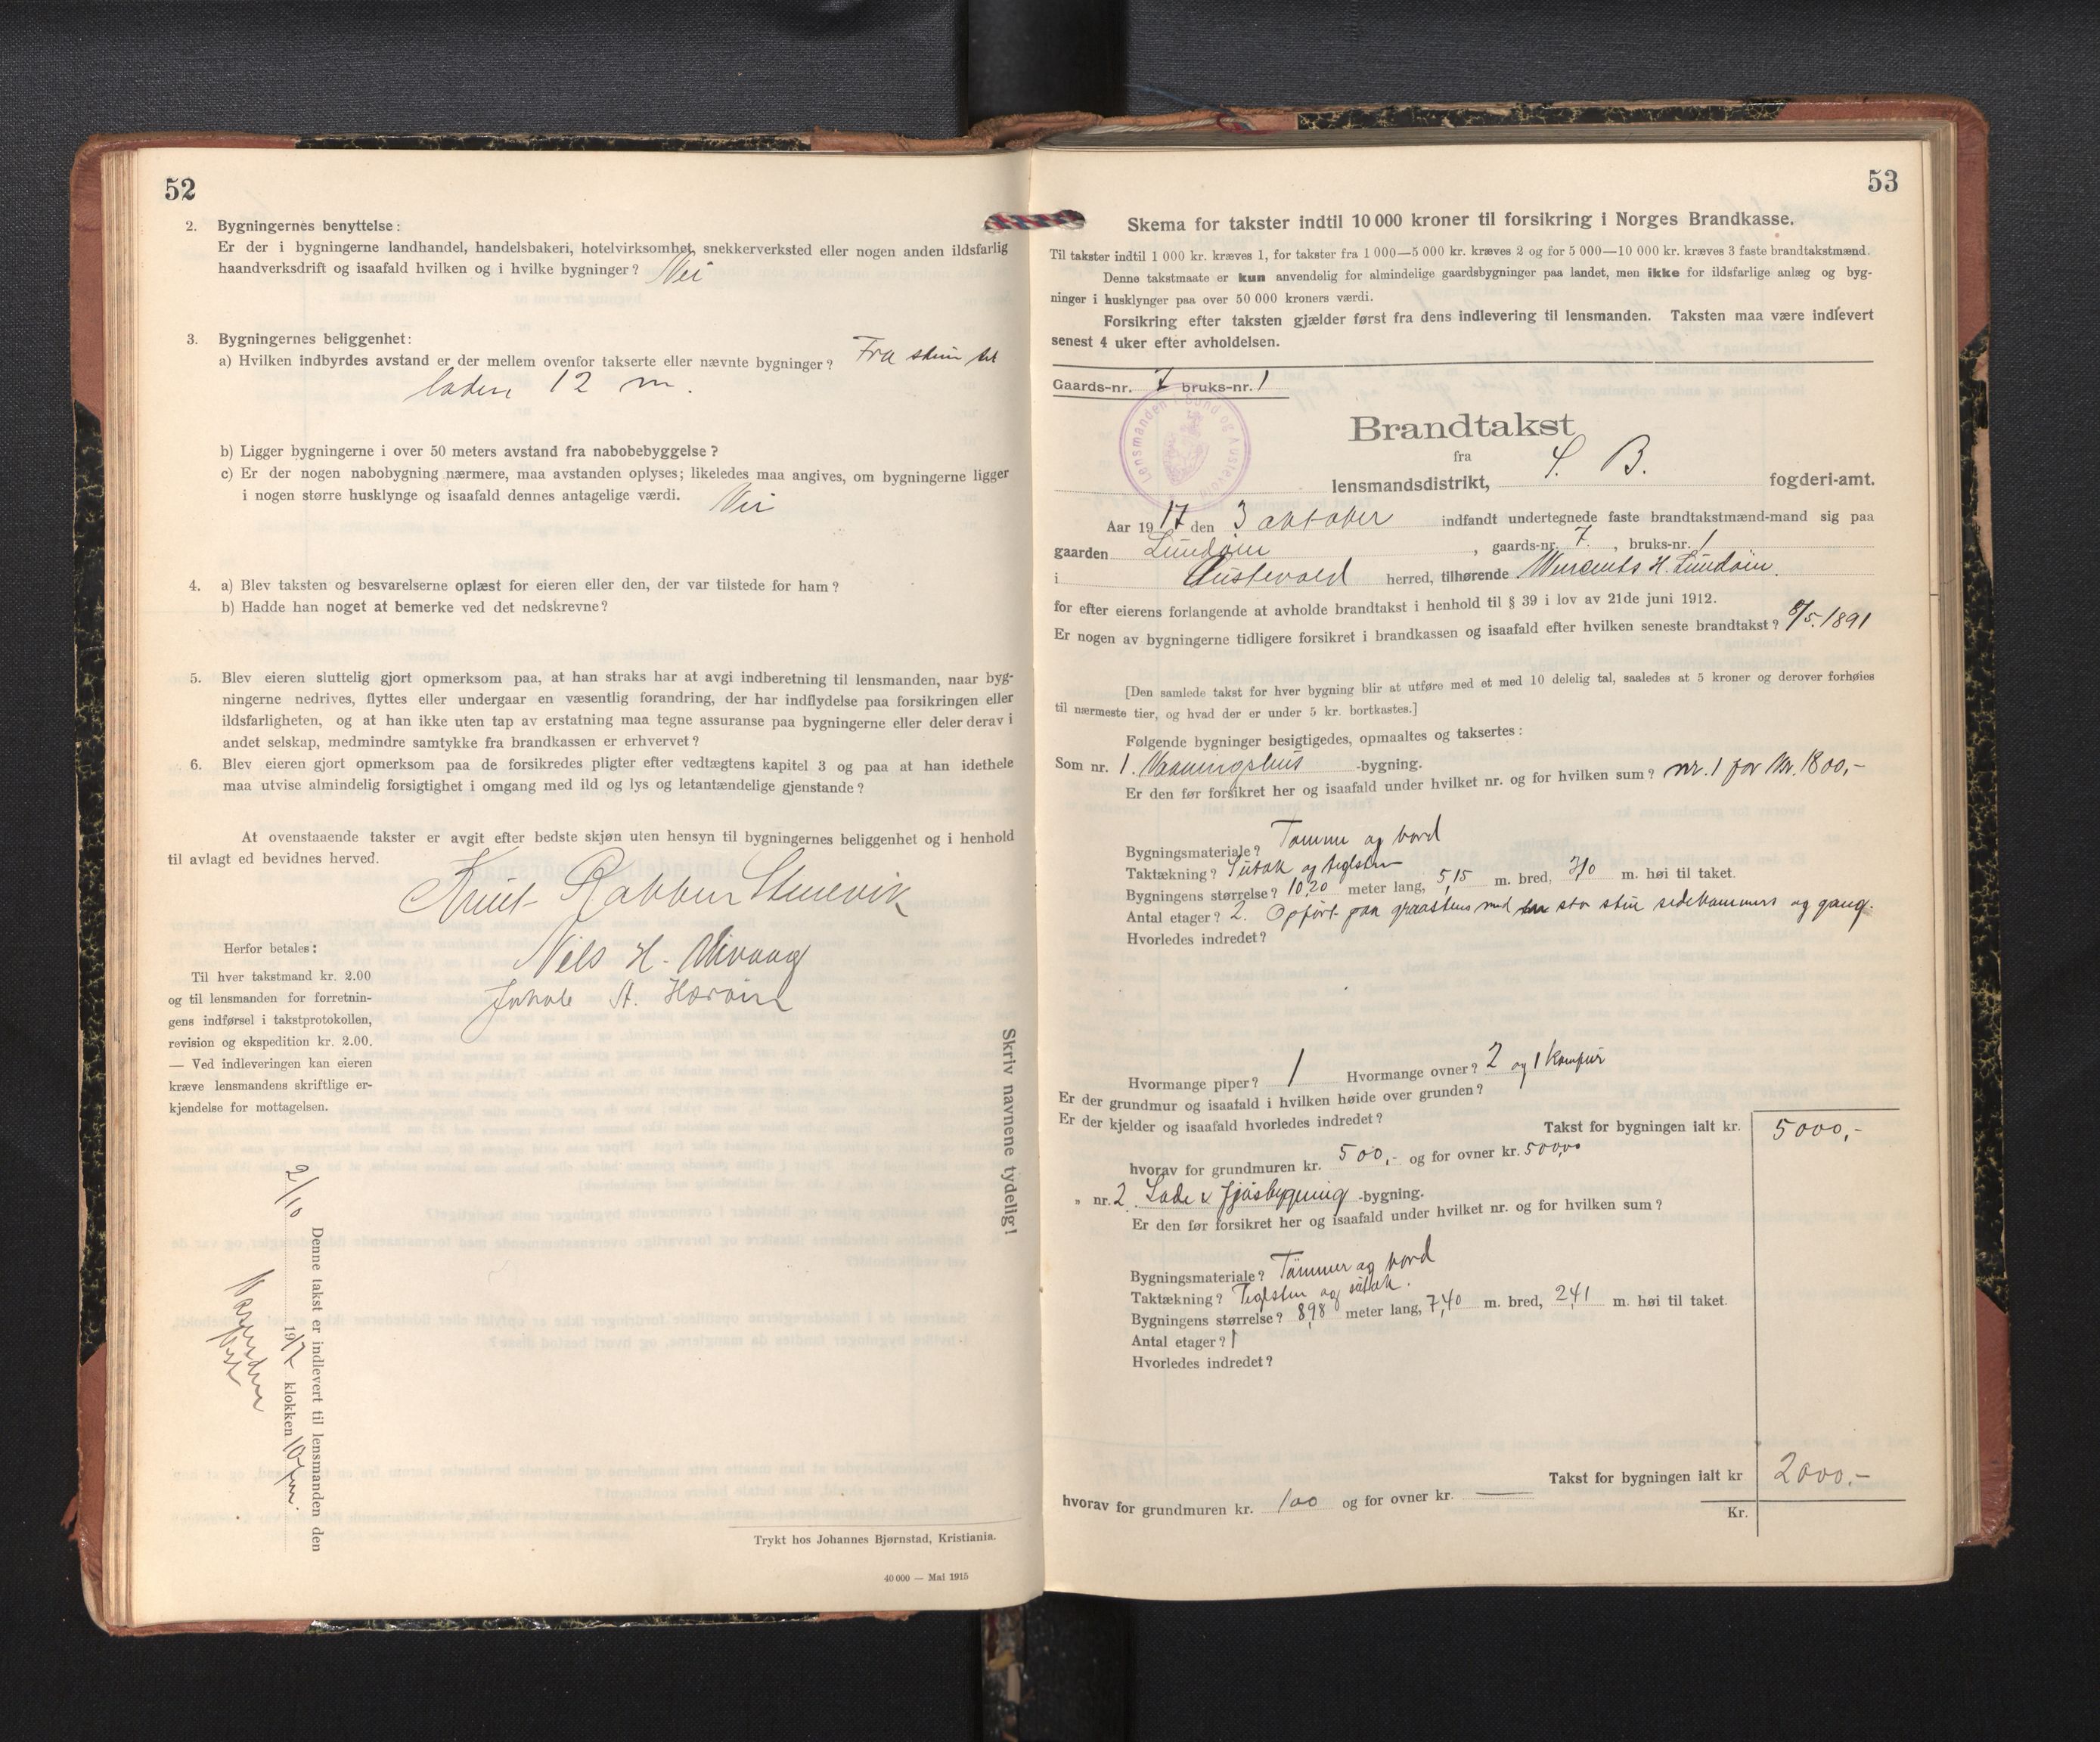 52
2. Bygningernes benyttelse:
Er der i bygningerne landhandel, handelsbakeri, hotelvirksomhet, snekkerverksted eller nogen anden ildsfarlig
haandverksdrift og isaafald hvilken og i hvilke bygninger? Nei
3. Bygningernes beliggenhet:
a) Hvilken indbyrdes avstand er der mellem ovenfor takserte eller nævnte bygninger? Fra til
laden 12 m.
b) Ligger bygningerne i over 50 meters avstand fra nabobebyggelse?
c) Er der nogen nabobygning nærmere, maa avstanden oplyses; likeledes maa angives, om bygningerne ligger
i nogen større husklynge og isaafald dennes antagelige værdi. Nei
4. a) Blev taksten og besvarelserne oplæst for eieren eller den, der var tilstede for ham?
b) Hadde han noget at bemerke ved det nedskrevne?
5. Blev eieren sluttelig gjort opmerksom paa, at han straks har at avgi indberetning til lensmanden, naar byg-
ningerne nedrives, flyttes eller undergaar en væsentlig forandring, der har indflydelse paa forsikringen eller
ildsfarligheten, og at han ikke uten tap av erstatning maa tegne assuranse paa bygningerne eller deler derav i
andet selskap, medmindre samtykke fra brandkassen er erhvervet?
6. Blev eieren gjort opmerksom paa de forsikredes pligter efter vedtægtens kapitel 3 og paa at han idethele
maa utvise almindelig forsigtighet i omgang med ild og lys og letantændelige gjenstande?
At ovenstaaende takster er avgit efter bedste skjøn uten hensyn til bygningernes beliggenhet og i henhold
til avlagt ed bevidnes herved.
Knut Rabben Stenevik
Nels H. Vivaag
A.
Herfor betales:
Til hver takstmand kr. 2.00
og til lensmanden for forretnin-
gens indførsel i takstprotokollen,
revision og ekspedition kr. 2.00.
— Ved indleveringen kan eieren
kræve lensmandens skriftlige er-
kjendelse for mottagelsen.
Skriv navnene tydelig!
Denne takst er indlevert til lensmanden den
2/10 1917 klokken 10
Trykt hos Johannes Bjørnstad, Kristiania.
40 000 — Mai 1915
53
Skema for takster indtil 10 000 kroner til forsikring i Norges Brandkasse.
Til takster indtil 1 000 kr. kræves 1, for takster fra 1 000—5 000 kr. kræves 2 og for 5 000—10 000 kr. kræves 3 faste brandtakstmænd.
Denne takstmaate er kun anvendelig for almindelige gaardsbygninger paa landet, men ikke for ildsfarlige anlæg og byg-
ninger i husklynger paa over 50 000 kroners værdi.
Forsikring efter taksten gjælder først fra dens indlevering til lensmanden. Taksten maa være indlevert
senest 4 uker efter avholdelsen.
Gaards-nr. 7 bruks-nr. 1
Lensmanden i Sund og Austevold
Brandtakst
fra
lensmandsdistrikt, S. B. fogderi-amt.
Aar 1917 den 3 oktober indfandt undertegnede faste brandtakstmænd-mand sig paa
gaarden Lundøin, gaards-nr. 7, bruks-nr. 1
i Austevold herred, tilhørende H. Lundøin.
for efter eierens forlangende at avholde brandtakst i henhold til § 39 i lov av 21de juni 1912.
Er nogen av bygningerne tidligere forsikret i brandkassen og isaafald efter hvilken seneste brandtakst? 8/5.1891
[Den samlede takst for hver bygning blir at utføre med et med 10 delelig tal, saaledes at 5 kroner og derover forhøies
til nærmeste tier, og hvad der er under 5 kr. bortkastes.]
Følgende bygninger besigtigedes, opmaaltes og taksertes:
Som nr. 1. Vaaningshus -bygning.
Er den før forsikret her og isaafald under hvilket nr. og for hvilken sum? nr. 1 for kr. 1800,-
Bygningsmateriale? Tømmer og bord
Taktækning? Sutak og teglsten
Bygningens størrelse? 10,20 meter lang, 5,15 m. bred, 3,10 m. høi til taket.
Antal etager? 2. Opført paa graastens med stor stue sidekammers og gang.
Hvorledes indredet?
Hvormange piper? 1 Hvormange ovner? 2 og 1 komfur
Er der grundmur og isaafald i hvilken høide over grunden?
Er der kjelder og isaafald hvorledes indredet?
Takst for bygningen ialt kr. 5000,-
hvorav for grundmuren kr. 500,- og for ovner kr. 50,00
„ nr. 2. Lade & fjøsbygning -bygning.
Er den før forsikret her og isaafald under hvilket nr. og for hvilken sum?
Bygningsmateriale? Tømmer og bord
Taktækning? Teglsten og sutak.
Bygningens størrelse? 8,98 meter lang, 7,40 m. bred, 2,41 m. høi til taket.
Antal etager? 1
Hvorledes indredet?
Takst for bygningen ialt kr 2000,-
hvorav for grundmuren kr. 100 og for ovner kr. —
Kr.